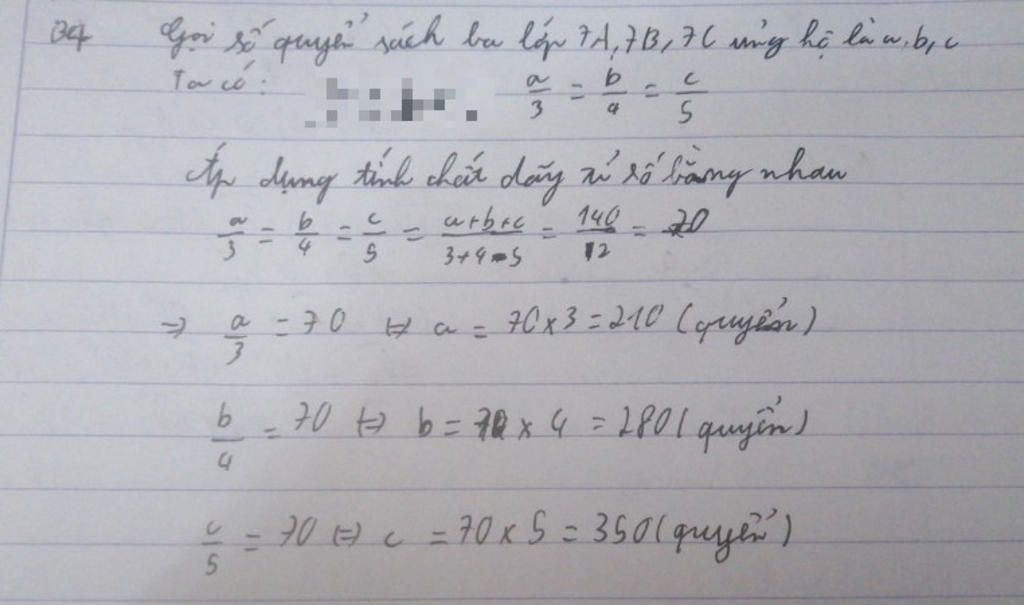 Gọi số quyển sách ba lớp 7A, 7B, 7C ủng hộ là a, b, c
Ta có: a/3 = b/4 = c/5
Áp dụng tính chất dãy tỉ số bằng nhau
a/3 = b/4 = c/5 = (a+b+c)/(3+4-5) = 140/12 = 70
=> a/3 = 70 <=> a = 70 x 3 = 210 (quyển)
b/4 = 70 <=> b = 70 x 4 = 280 (quyển)
c/5 = 70 <=> c = 70 x 5 = 350 (quyển)